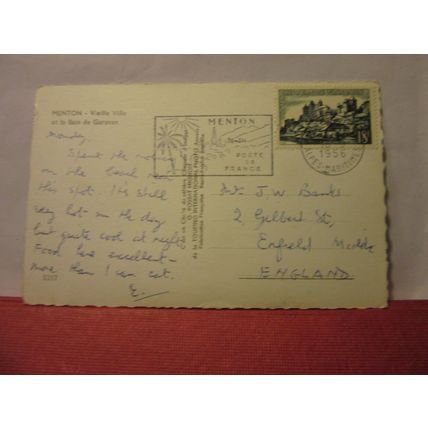 MENTON - Vieille Ville
et la Baie de Garavan
Monday
Spent the
on the beach near
this spot. It's still
very hot in the day
but quite cool at night
Food here excellent -
more than I can eat.
E.
5257
MENTON
POSTE
DE
FRANCE
1956
ALPES-MARITIMES
18
J. W. Banks
2, Gilbert St,
Enfield Middx
ENGLAND